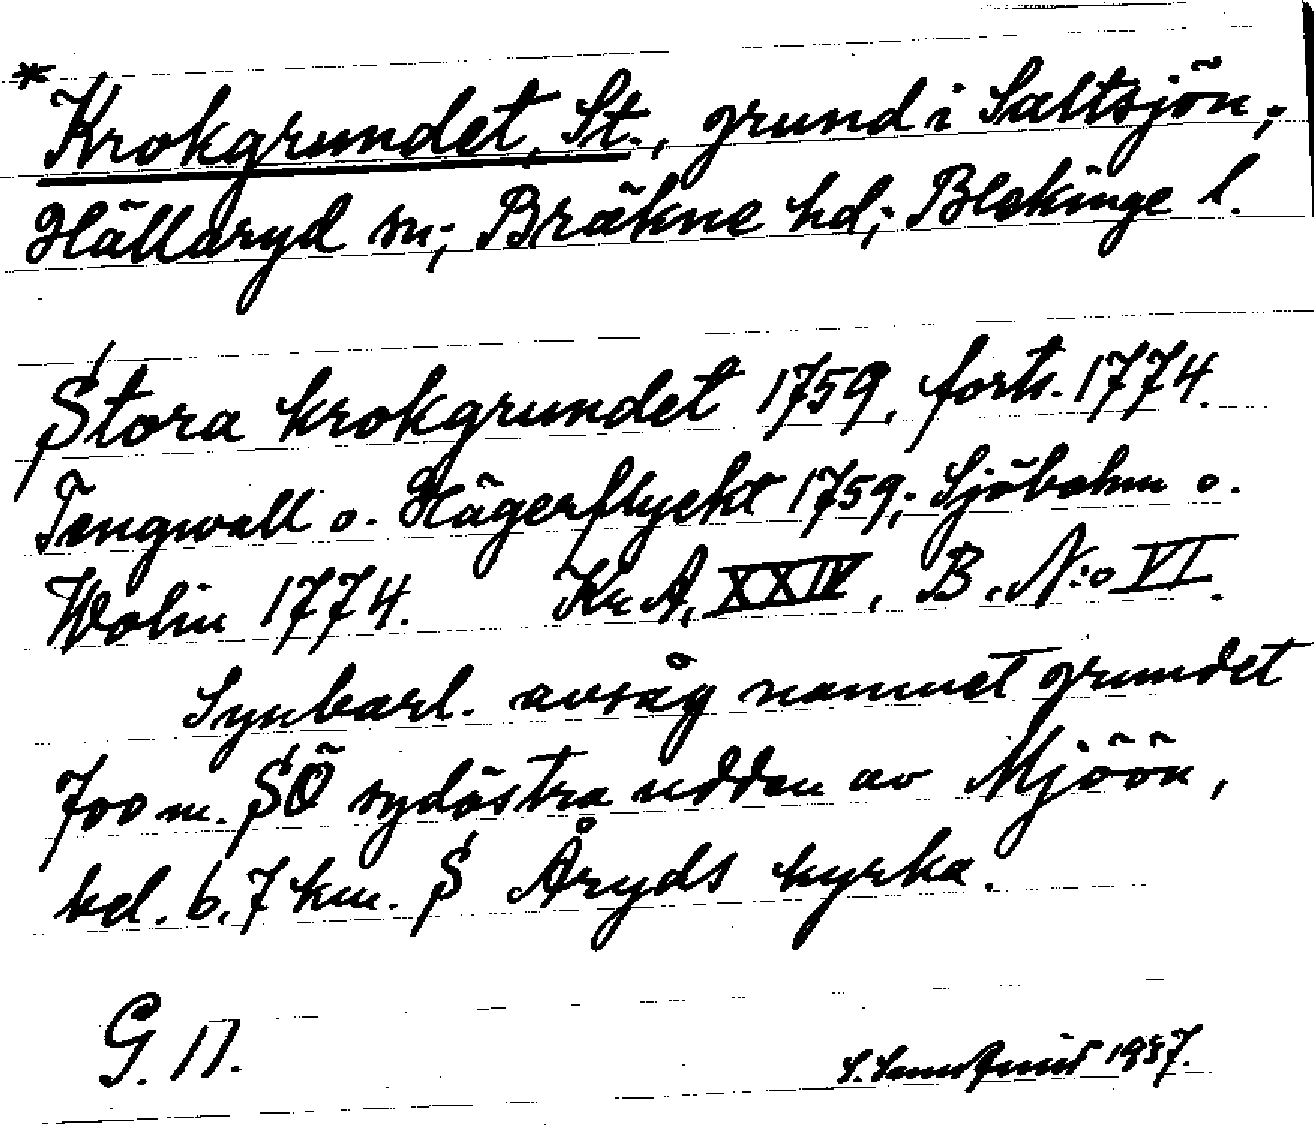 * Krokgrundet, St., grund i Saltsjön,
Hällaryd sn; Bräkne hd; Blekinge l.
Stora krokgrundet 1759, forts. 1774.
Tengwall o. Hägerflyckt 1759; Sjöbohm o.
Wolin 1774. Kr. A. XXIV, B. N:o VI.
Synbarl. avsåg namnet grundet
700 m. SÖ sydöstra udden av Mjöön,
bel. 6,7 km. S Åryds kyrka.
G. 17.
S. 1937.